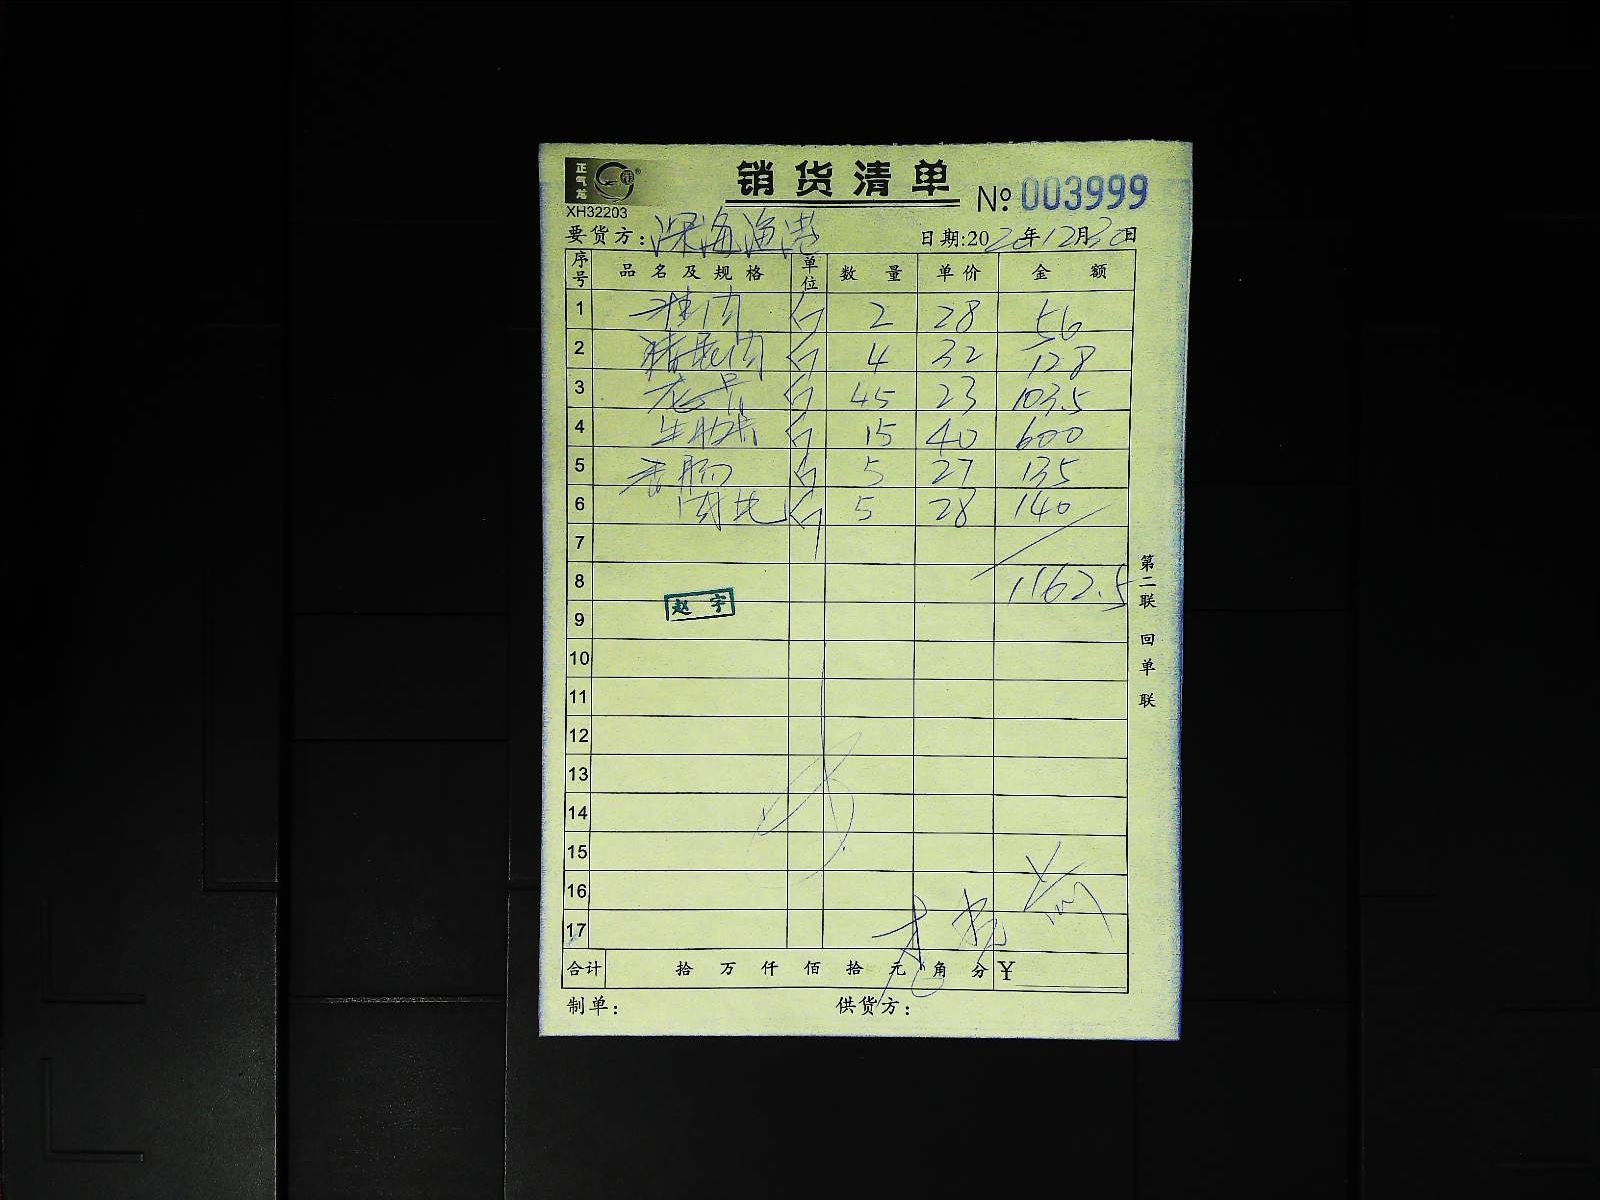 正气龙
XH32203
销货清单
№ 003999
要货方:深海渔港 日期:2020年12月30日
序号 品名及规格 单位 数量 单价 金额
1 斤 2 28 56
2 猪展肉 斤 4 32 128
3 龙骨 斤 45 23 103.5
4 牛肋条 斤 15 40 600
5 香肠 斤 5 27 135
6 斤 5 28 140
7
8 1162.5
赵宇
9
10
11
12
13
14
15
16
17
合计 拾 万 仟 佰 拾 元 角 分 ¥
制单: 供货方:
第二联 回单联